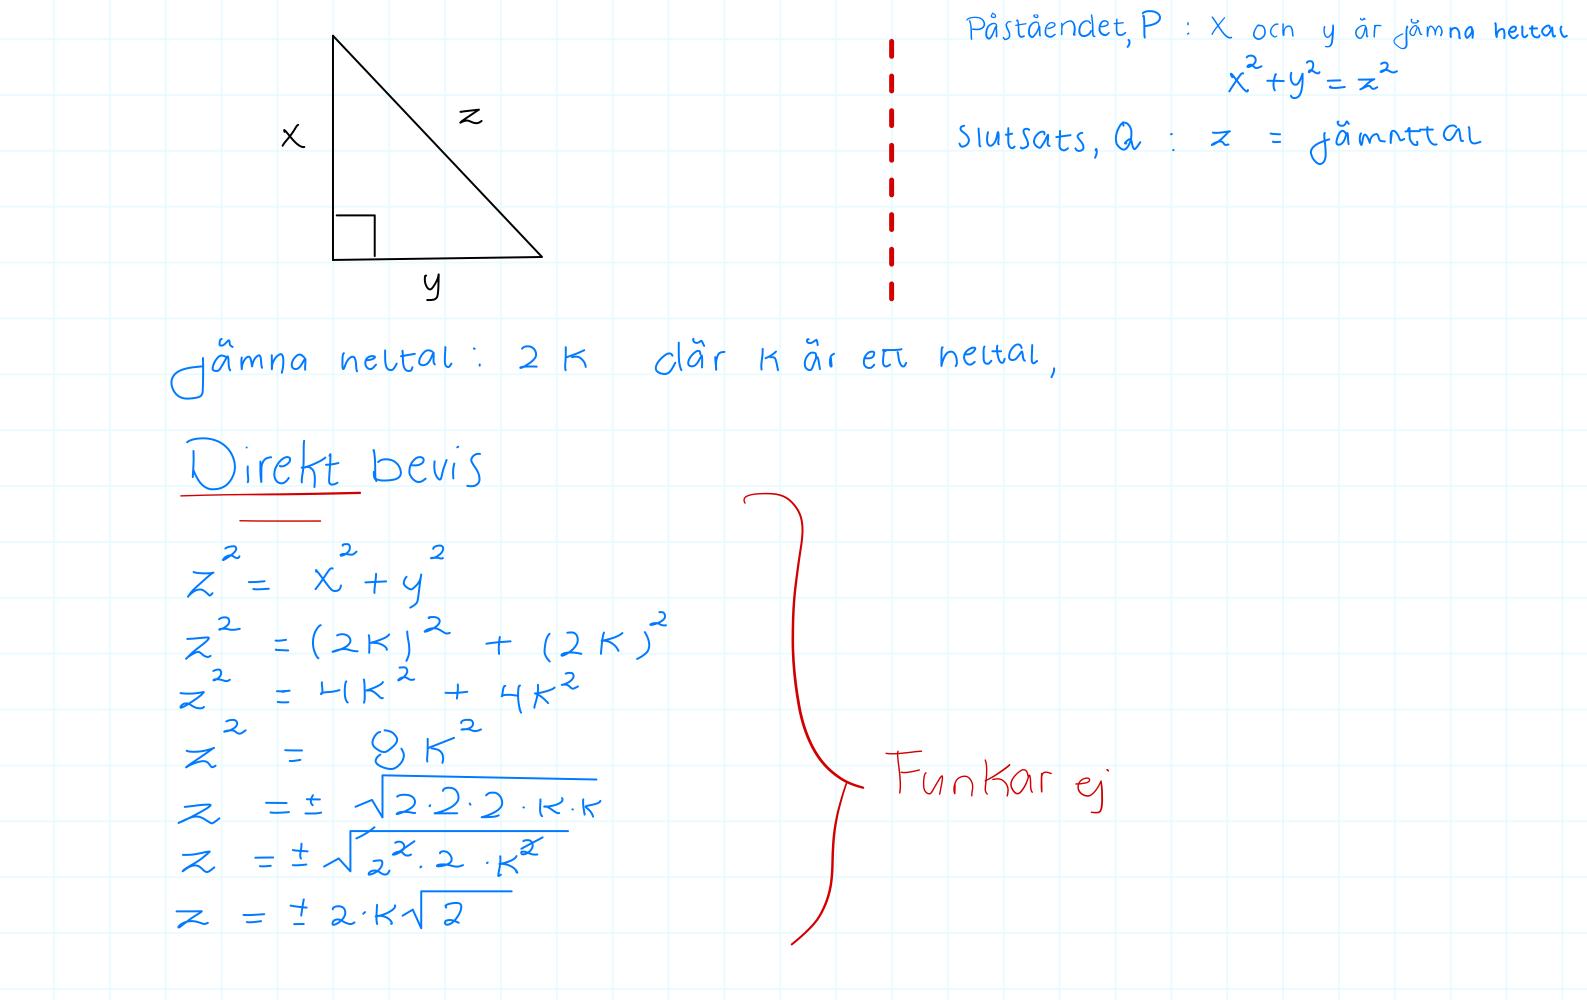 Påståendet, P : x och y är jämna heltal
x² + y² = z²
Slutsats, Q : z = jämnttal
x
z
y
jämna heltal : 2 k där k är ett heltal,
Direkt bevis
z² = x² + y²
z² = (2k)² + (2k)²
z² = 4k² + 4k²
z² = 8k²
z = ± √2·2·2·k·k
z = ± √2²·2·k²
z = ± 2·k√2
Funkar ej